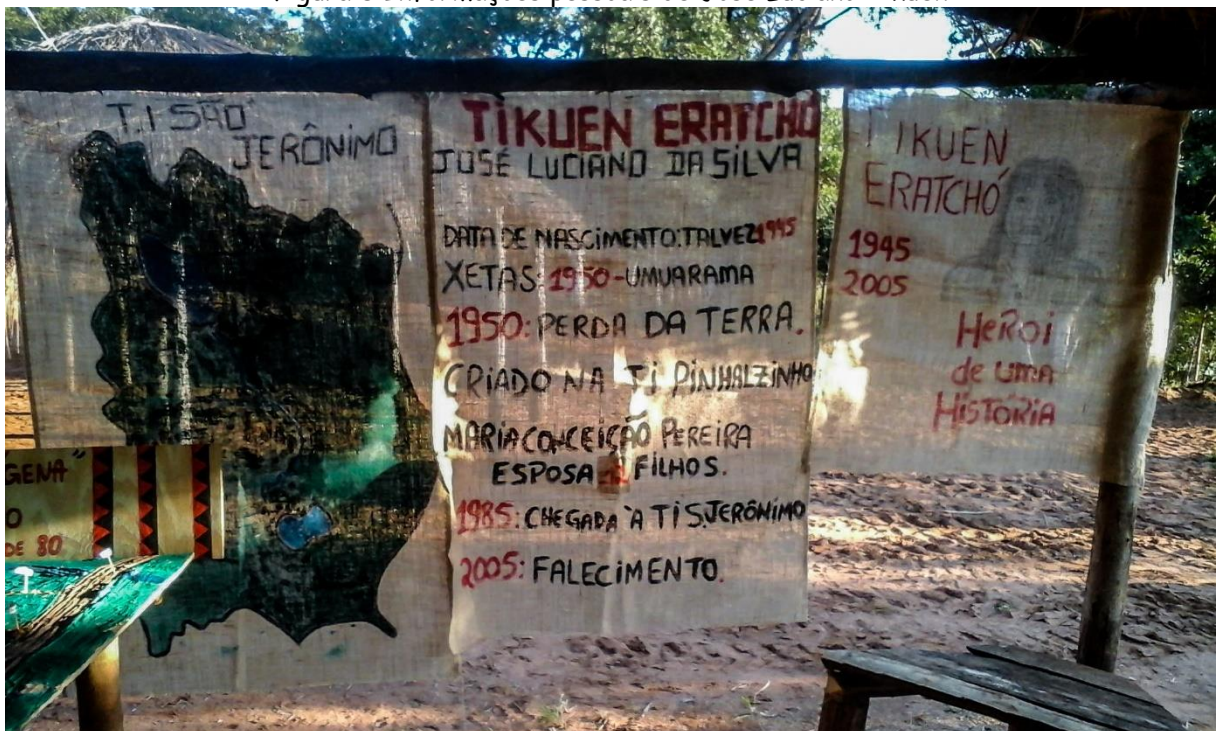 T.I SÃO
JERÔNIMO
TIKUEN ERATCHÓ
JOSÉ LUCIANO DA SILVA
DATA DE NASCIMENTO: TALVEZ 1945
XETAS: 1950 - UMUARAMA
1950: PERDA DA TERRA.
CRIADO NA TI PINHALZINHO
MARIA CONCEIÇÃO PEREIRA
ESPOSA FILHOS.
1985: CHEGADA À TI S.JERÔNIMO
2005: FALECIMENTO.
TIKUEN
ERATCHÓ
1945
2005
HEROI
de UMA
HISTÓRIA
GENA"
O
DE 80